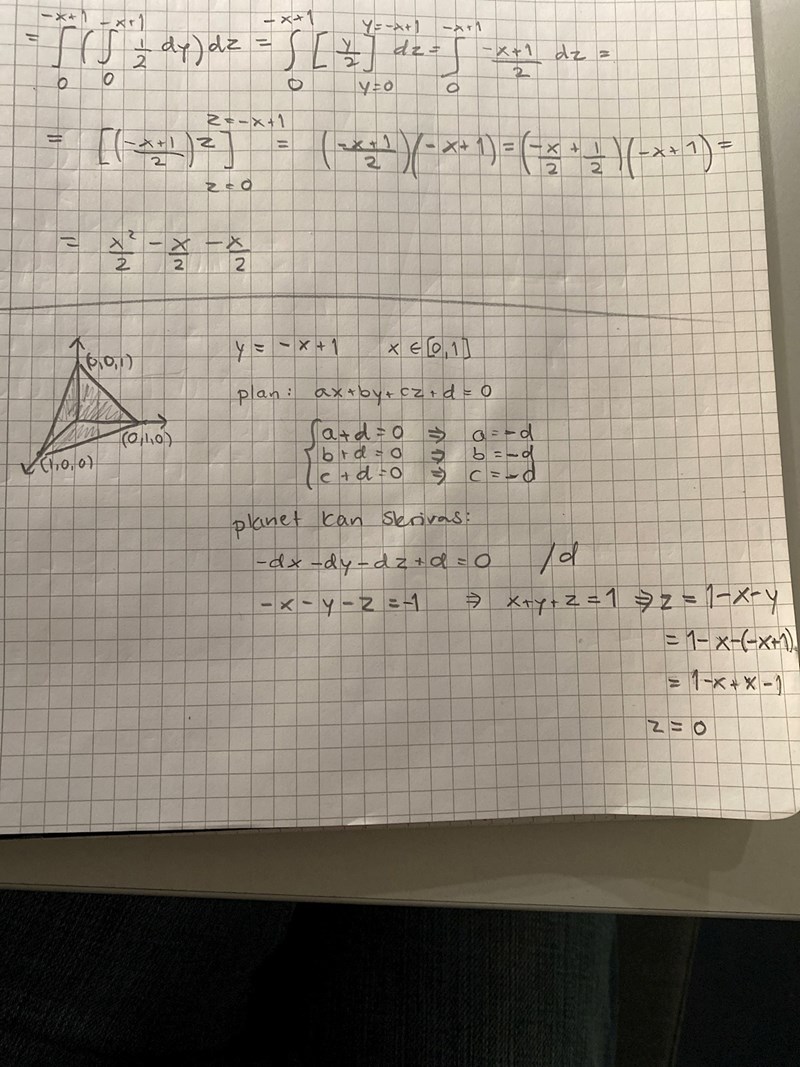 = ∫_0^{-x+1} ( ∫_0^{-x+1} 1/2 dy ) dz = ∫_0^{-x+1} [ y/2 ]_{y=0}^{y=-x+1} dz = ∫_0^{-x+1} (-x+1)/2 dz =
= [ ( (-x+1)/2 ) z ]_{z=0}^{z=-x+1} = ( (-x+1)/2 )(-x+1) = ( -x/2 + 1/2 )(-x+1) =
= x²/2 - x/2 - x/2
y = -x+1 x ∈ [0,1]
(0,0,1)
(0,1,0)
(1,0,0)
plan: ax+by+cz+d=0
{ a+d=0 ⇒ a=-d
b+d=0 ⇒ b=-d
c+d=0 ⇒ c=-d
planet kan skrivas:
-dx-dy-dz+d=0 /d
-x-y-z=-1 ⇒ x+y+z=1 ⇒ z=1-x-y
= 1-x-(-x+1)
= 1-x+x-1
z=0